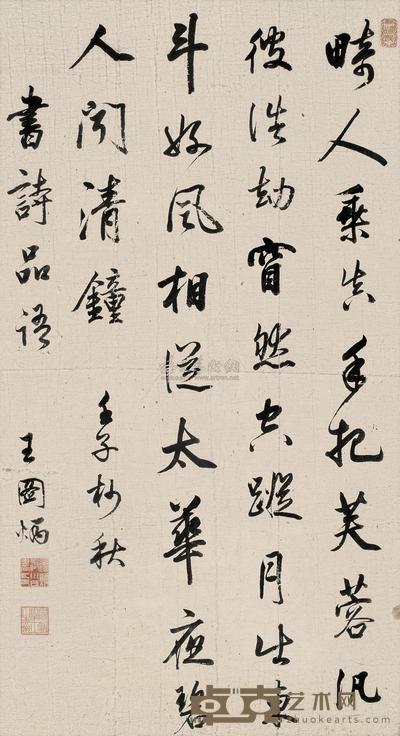 畸人乘真手把芙蓉汎
彼浩劫窅然空蹤月出東
斗好風相從太華夜碧
人聞清鐘
壬子杪秋
書詩品語
王圖炳
卓克艺术网
zhuokearts.com